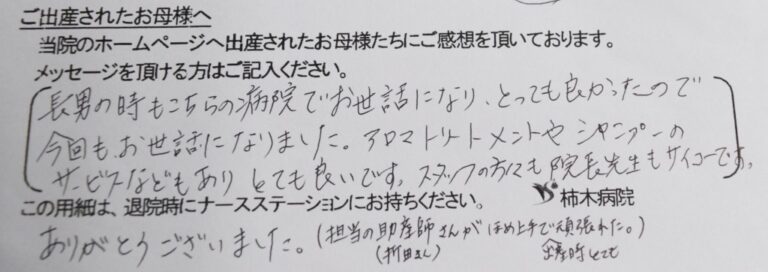 ご出産されたお母様へ
当院のホームページへ出産されたお母様たちにご感想を頂いております。
メッセージを頂ける方はご記入ください。
長男の時もこちらの病院でお世話になり、とっても良かったので
今回も、お世話になりました。アロマトリートメントや シャンプーの
サービスなどもあり とても良いです。スタッフの方々も 院長先生もサイコーです。
この用紙は、退院時にナースステーションにお持ちください。
柿木病院
ありがとうございました。(担当の助産師さんが ほめ上手で頑張れた。)
(折田さん) 出産時とても